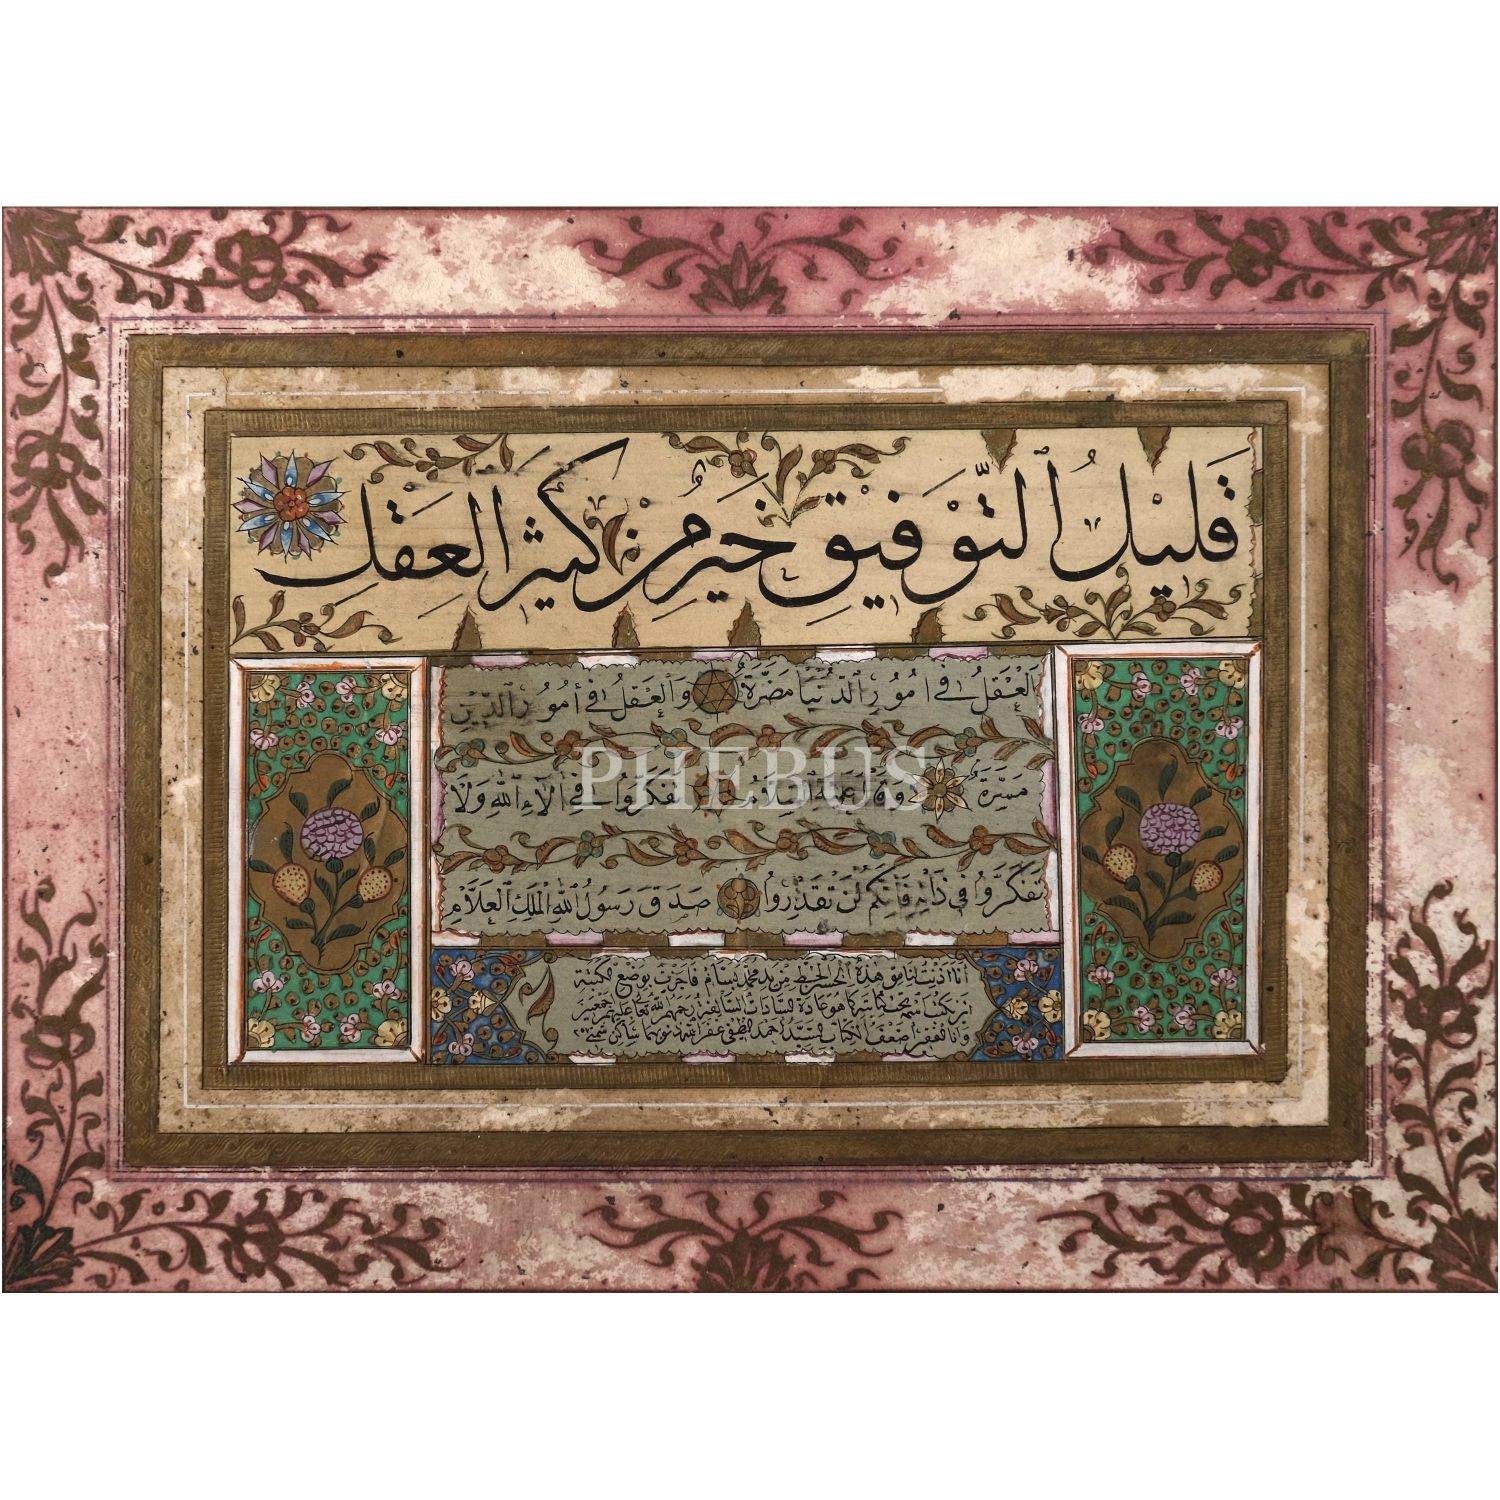 قَلِيلُ التَّوْفِيقِ خَيْرٌ مِنْ كَثِيرِ الْعَقْلِ
اَلْعَقْلُ فِي اُمُورِ الدُّنْيَا مَضَرَّةٌ وَالْعَقْلُ فِي اُمُورِ الدِّينِ
مَسَرَّةٌ وَقَالَ عَلَيْهِ السَّلَامُ تَفَكَّرُوا فِي آلَاءِ اللهِ وَلَا
تَفَكَّرُوا فِي ذَاتِهِ فَاِنَّكُمْ لَنْ تَقْدِرُوا صَدَقَ رَسُولُ اللهِ الْمَلِكِ الْعَلَّامِ
PHEBUS
انا اذنت لنامق هذه الحسن الخط من يد محمد فاجزت بوضع الكتبة
السادات رحمهم الله تعالى عليهم اجمعين
وانا الفقير اضعف الكتاب السيد احمد غفر الله ذنوبهما